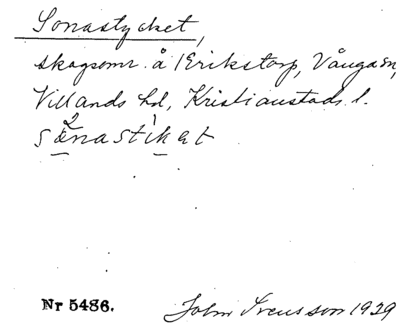 Sonastycket,
skogsomr. å Erikstorp, Vånga sn,
Villands hd, Kristianstads l.
Nr 5486.
John Svensson 1929